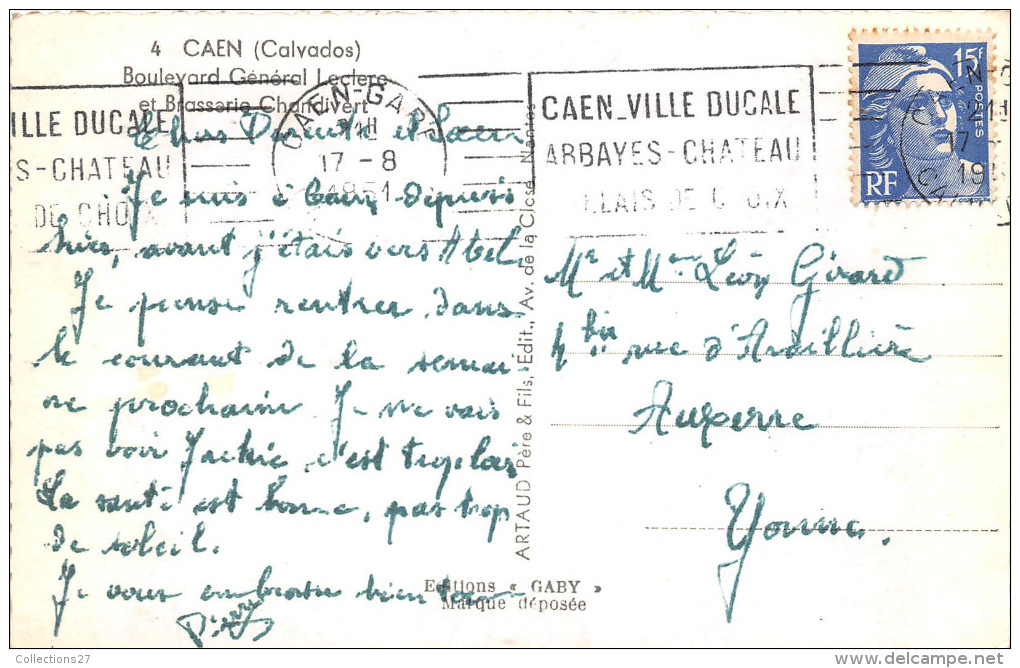 4 CAEN (Calvados)
Boulevard Général Leclerc
et Brasserie Chandivert
ILLE DUCALE
S-CHATEAU
DE CHOIX
CAEN-GARE
21H
17-8
1951
CAEN_VILLE DUCALE
ABBAYES-CHATEAU
RELAIS DE CHOIX
15F
POSTES
RF
Chers Parents et
Je suis à Caen depuis
hier, avant j'étais vers Abel.
Je pense rentrer dans
le courant de la semai
ne prochaine Je ne vais
pas voir Jackie c'est trop loin
La santé est bonne, pas trop
de soleil.
Je vous embrasse bien
Mr et Mme Léon Girard
4 bis rue d'Ardillière
Auxerre
Yonne.
ARTAUD Père & Fils, Édit., Av. de la Close Nantes
Editions « GABY »
Marque déposée
Collections27
www.delcampe.net